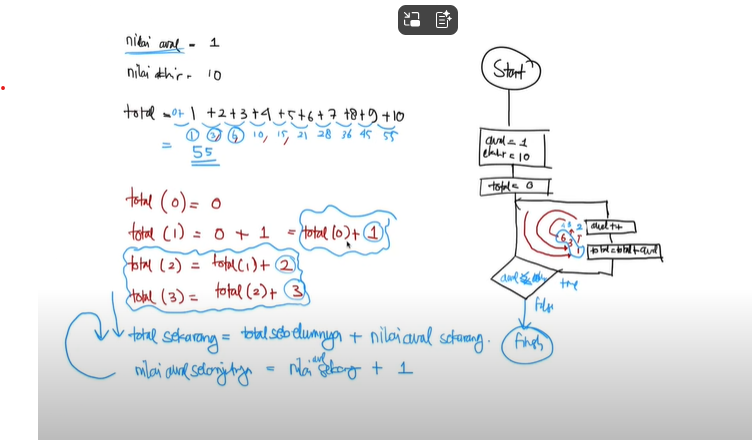 nilai awal = 1
nilai akhir = 10
total = 0+ 1 +2+3+4 +5+6+7 +8+9 +10
1 3, 6, 10, 15, 21 28 36 45 55
= 55
total (0) = 0
total (1) = 0 + 1 = total (0) + 1
total (2) = total (1) + 2
total (3) = total (2) + 3
total sekarang = total sebelumnya + nilai awal sekarang.
nilai awal selanjutnya = nilai awal sekarang + 1
Start
awal = 1
akhir = 10
total = 0
awal++
total = total + awal
awal
true
false
finish